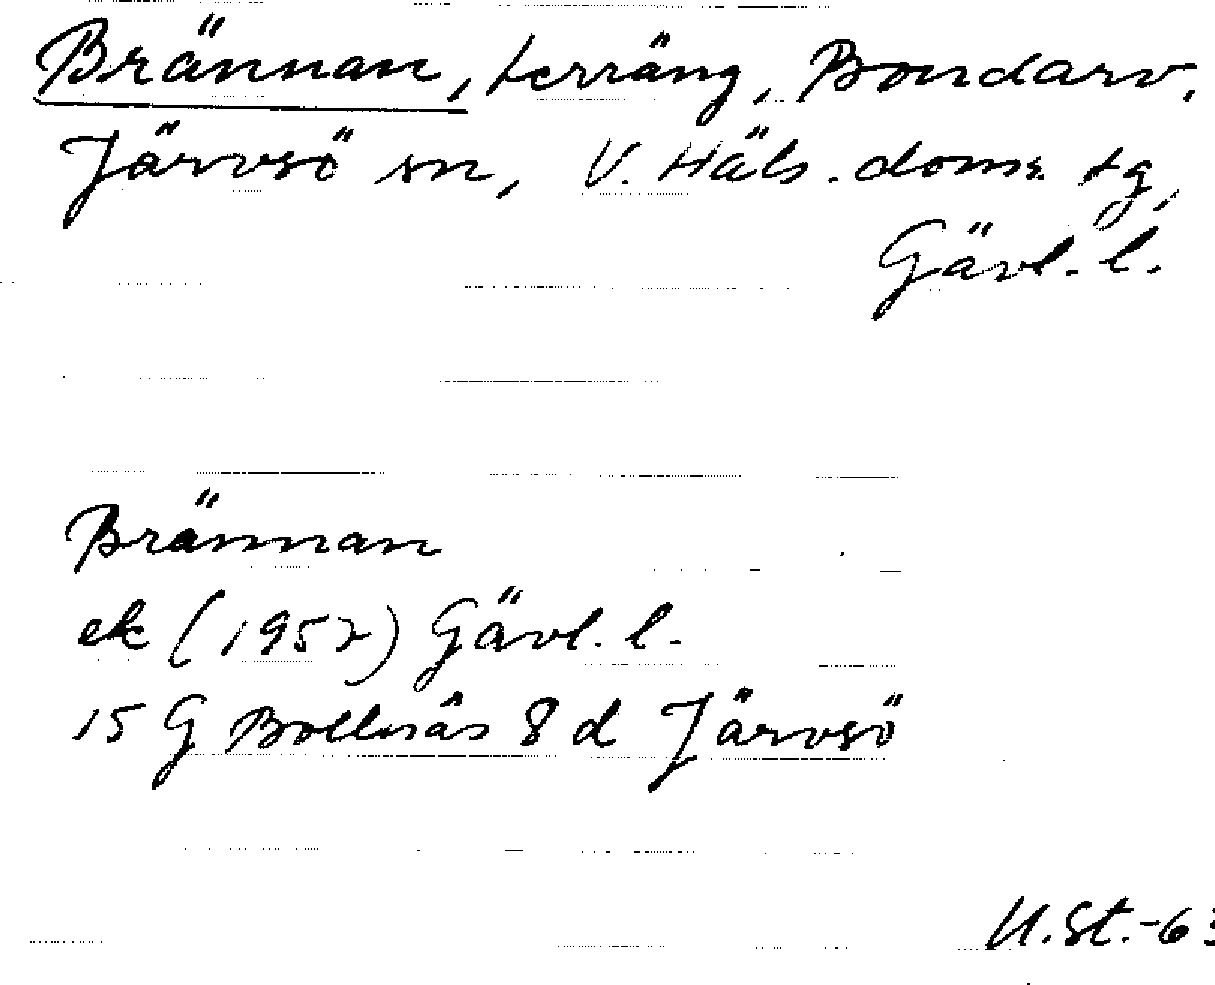 Brännan, terräng, Bondarv,
Järvsö sn, V. Häls. doms. tg,
Gävl. l.
Brännan
ek (1952) Gävl. l.
15 G Bollnäs 8 d Järvsö
U.St.-63